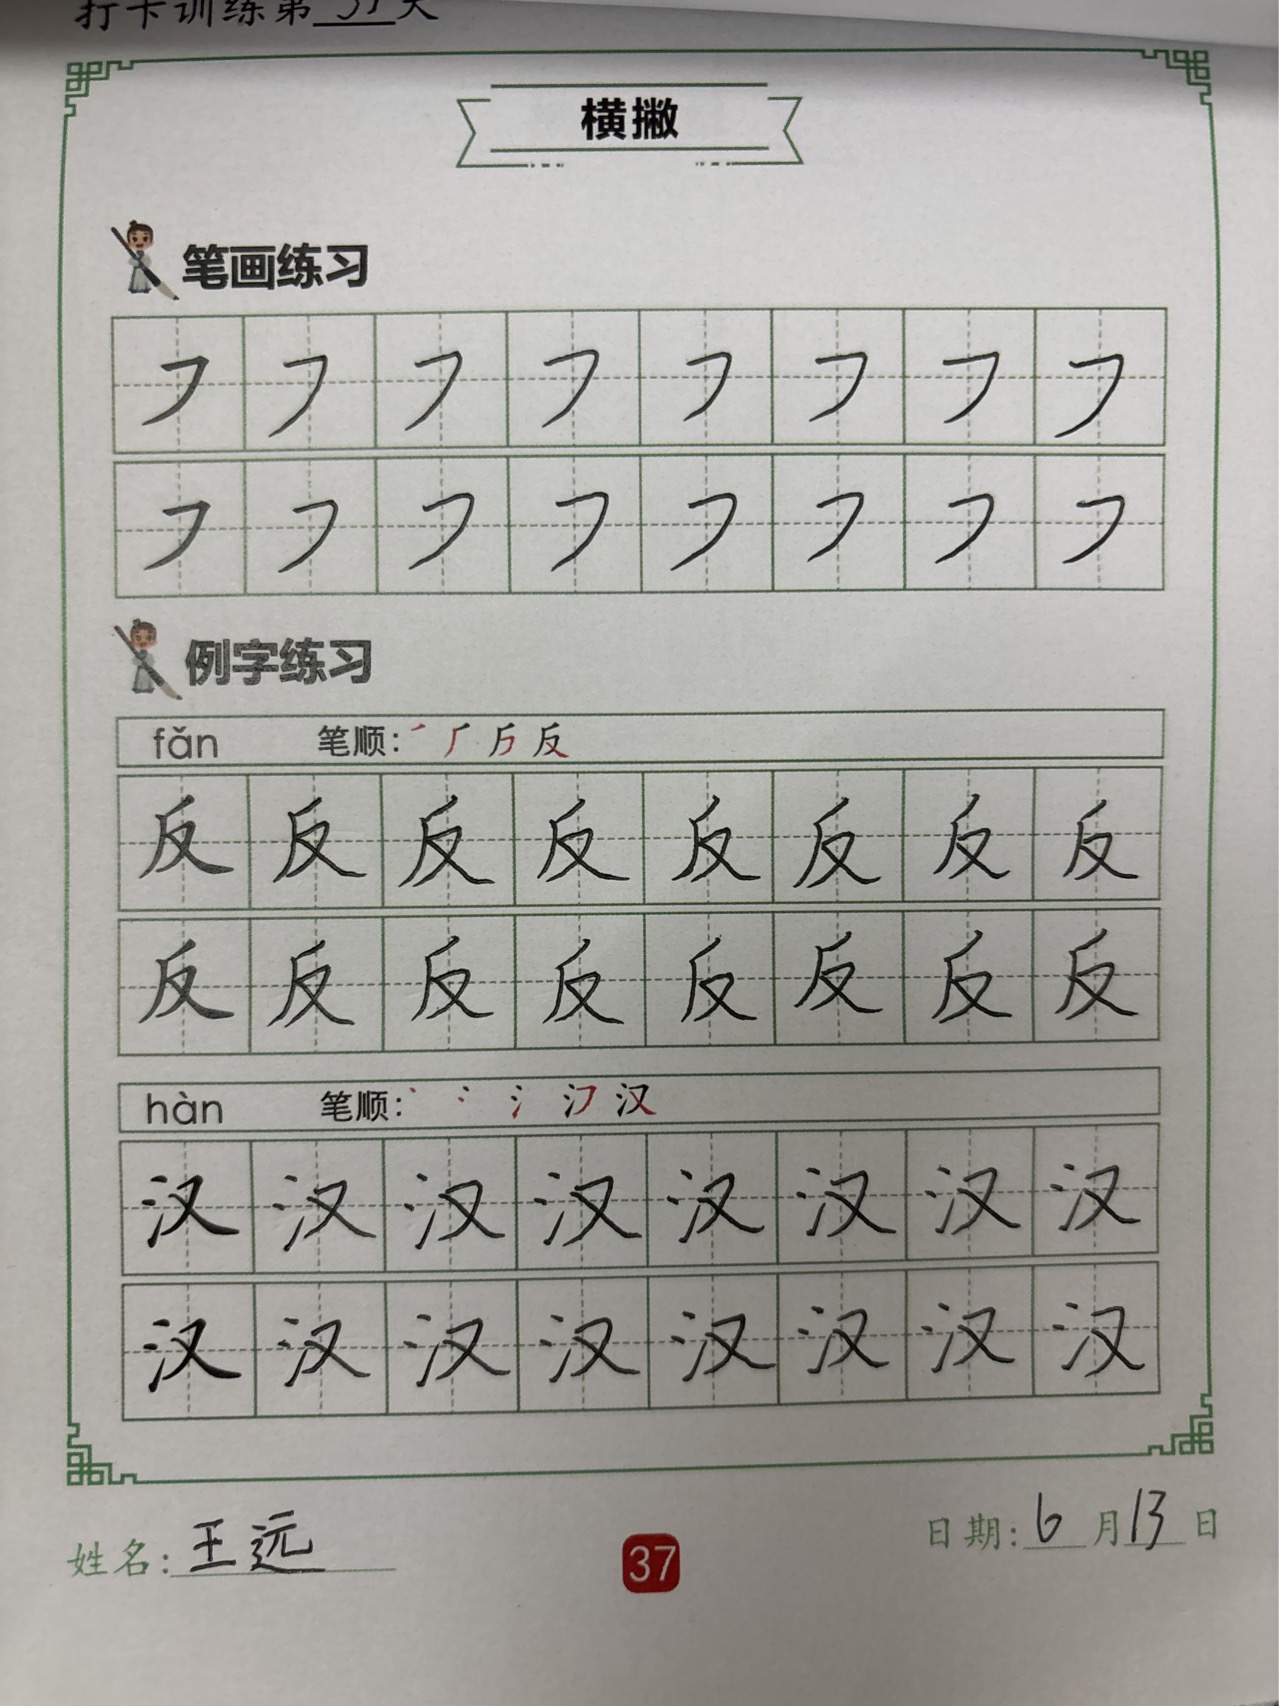 打卡训练第37天
横撇
笔画练习
㇇ ㇇ ㇇ ㇇ ㇇ ㇇ ㇇ ㇇
㇇ ㇇ ㇇ ㇇ ㇇ ㇇ ㇇ ㇇
例字练习
fǎn 笔顺: 反
反 反 反 反 反 反 反 反
反 反 反 反 反 反 反 反
hàn 笔顺: 丶 冫 氵 汉
汉 汉 汉 汉 汉 汉 汉 汉
汉 汉 汉 汉 汉 汉 汉 汉
姓名: 王远
37
日期: 6月13日